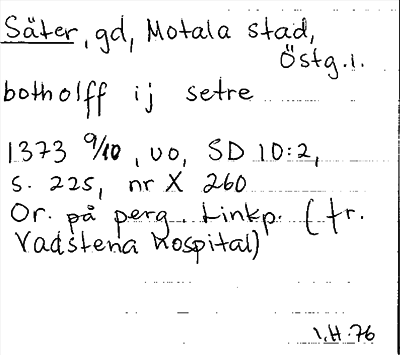 Säter, gd, Motala stad,
Östg.l.
botholff ij setre
1373 9/10, uo, SD 10:2,
s. 225, nr X 260
Or. på perg. Linkp. (fr.
Vadstena hospital)
I.H. 76